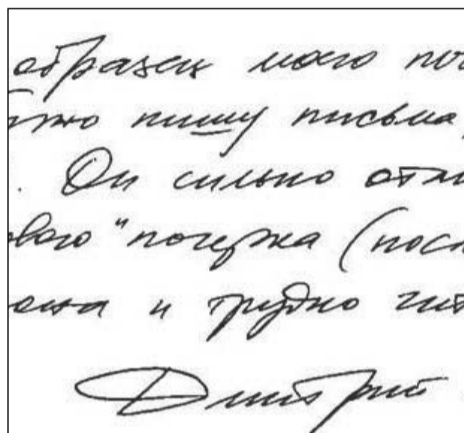 образец моего поч
пишу письма,
. Он сильно отли
вого "почерка (посл
и трудно чит
Дмитрий